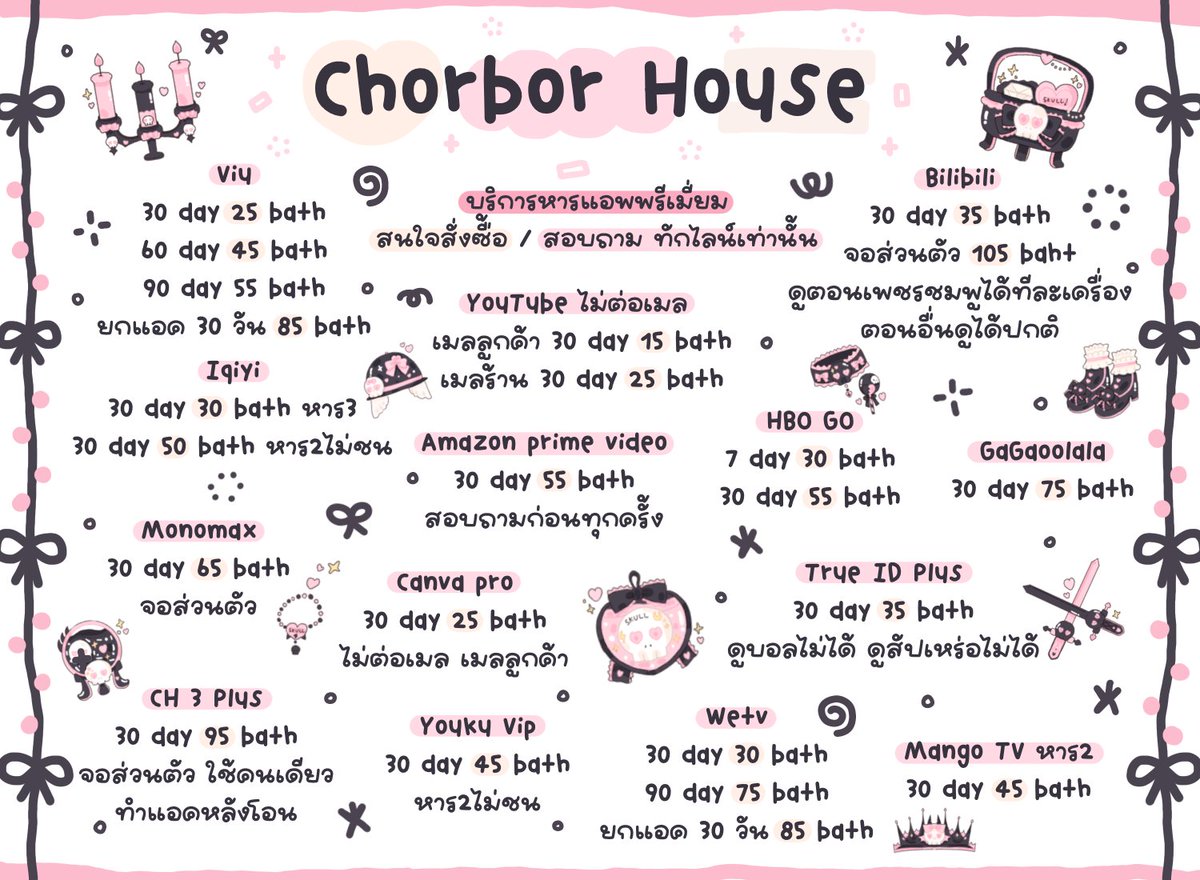 Chorbor House
บริการหารแอพพรีเมี่ยม
สนใจสั่งซื้อ / สอบถาม ทักไลน์เท่านั้น
Viu
30 day 25 bath
60 day 45 bath
90 day 55 bath
ยกแอค 30 วัน 85 bath
Iqiyi
30 day 30 bath หาร3
30 day 50 bath หาร2ไม่ชน
Monomax
30 day 65 bath
จอส่วนตัว
CH 3 Plus
30 day 95 bath
จอส่วนตัว ใช้คนเดียว
ทำแอคหลังโอน
YouTube ไม่ต่อเมล
เมลลูกค้า 30 day 15 bath
เมลร้าน 30 day 25 bath
Amazon prime video
30 day 55 bath
สอบถามก่อนทุกครั้ง
Canva pro
30 day 25 bath
ไม่ต่อเมล เมลลูกค้า
Youku Vip
30 day 45 bath
หาร2ไม่ชน
Bilibili
30 day 35 bath
จอส่วนตัว 105 baht
ดูตอนเพชรชมพูได้ทีละเครื่อง
ตอนอื่นดูได้ปกติ
HBO GO
7 day 30 bath
30 day 55 bath
GaGaoolala
30 day 75 bath
True ID Plus
30 day 35 bath
ดูบอลไม่ได้ ดูสัปเหร่อไม่ได้
Wetv
30 day 30 bath
90 day 75 bath
ยกแอค 30 วัน 85 bath
Mango TV หาร2
30 day 45 bath
SKULL
SKULL
SKULL